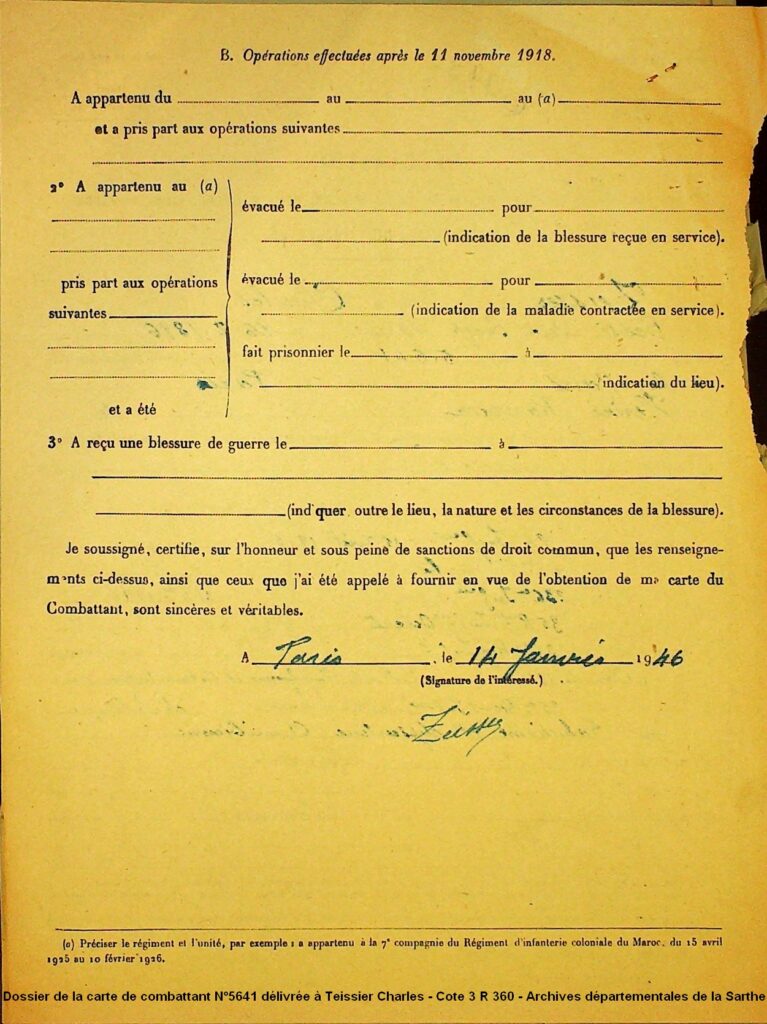 B. Opérations effectuées après le 11 novembre 1918.
A appartenu du au au (a)
et a pris part aux opérations suivantes
2° A appartenu au (a)
pris part aux opérations
suivantes
et a été
évacué le pour
(indication de la blessure reçue en service).
évacué le pour
(indication de la maladie contractée en service).
fait prisonnier le à
(indication du lieu).
3° A reçu une blessure de guerre le à
(ind'quer outre le lieu, la nature et les circonstances de la blessure).
Je soussigné, certifie, sur l'honneur et sous peine de sanctions de droit commun, que les renseigne-
ments ci-dessus, ainsi que ceux que j'ai été appelé à fournir en vue de l'obtention de ma carte du
Combattant, sont sincères et véritables.
A Paris, le 14 Janvier 1946
(Signature de l'intéressé.)
(a) Préciser le régiment et l'unité, par exemple : a appartenu à la 7e compagnie du Régiment d'infanterie coloniale du Maroc, du 15 avril
1925 au 10 février 1926.
Dossier de la carte de combattant N°5641 délivrée à Teissier Charles - Cote 3 R 360 - Archives départementales de la Sarthe